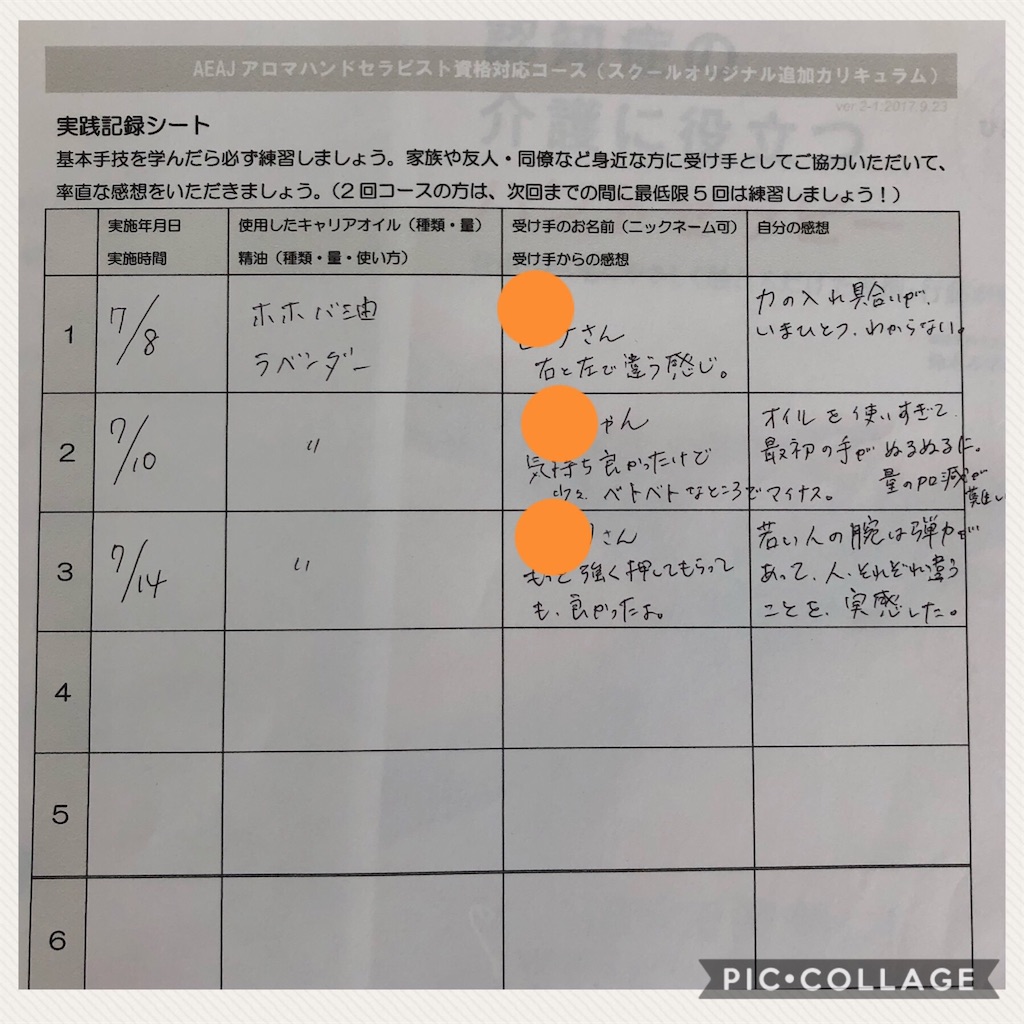 AEAJ アロマハンドセラピスト資格対応コース（スクールオリジナル追加カリキュラム）
ver 2-1:2017.9.23
認知症の
介護に役立つ
実践記録シート
基本手技を学んだら必ず練習しましょう。家族や友人・同僚など身近な方に受け手としてご協力いただいて、
率直な感想をいただきましょう。（２回コースの方は、次回までの間に最低限５回は練習しましょう！）
実施年月日
実施時間
使用したキャリアオイル（種類・量）
精油（種類・量・使い方）
受け手のお名前（ニックネーム可）
受け手からの感想
自分の感想
1
7/8
ホホバ油
ラベンダー
さん
右と左で違う感じ。
力の入れ具合いが、
いまひとつ、わからない。
2
7/10
〃
ゃん
気持ち良かったけど
少々、ベトベトなところでマイナス。
オイルを使いすぎて、
最初の手がぬるぬるに。
量の加減が
難しい
3
7/14
〃
さん
もっと強く押してもらって
も、良かったよ。
若い人の腕は弾力が
あって、人、それぞれ違う
ことを、実感した。
4
5
6
PIC•COLLAGE